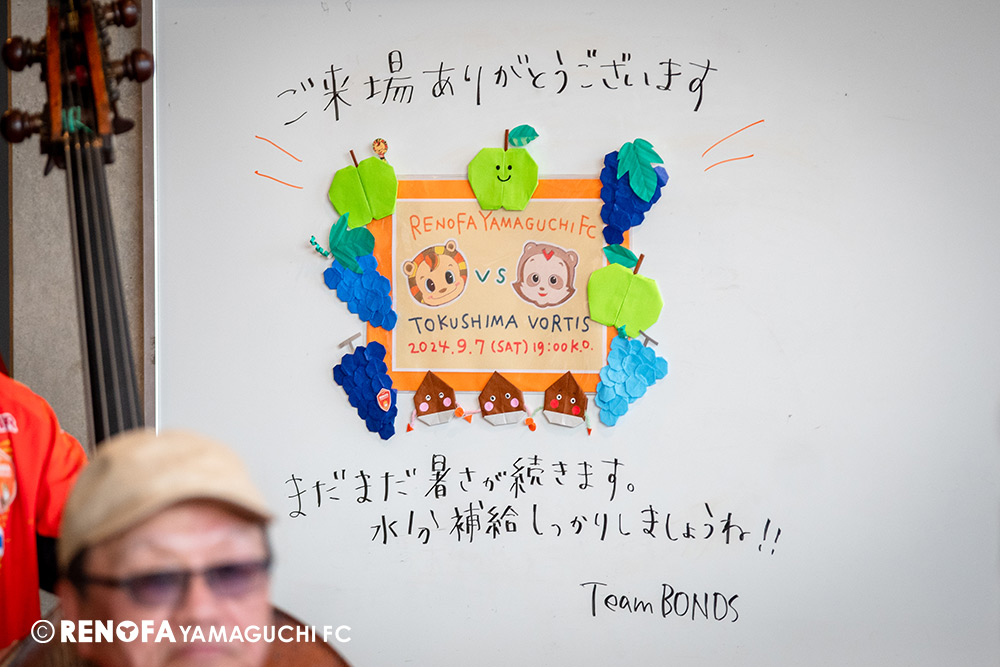 ご来場ありがとうございます
RENOFA YAMAGUCHI FC
VS
TOKUSHIMA VORTIS
2024.9.7 (SAT) 19:00 K.O.
まだまだ暑さが続きます。
水分補給しっかりしましょうね!!
Team BONDS
© RENOFA YAMAGUCHI FC